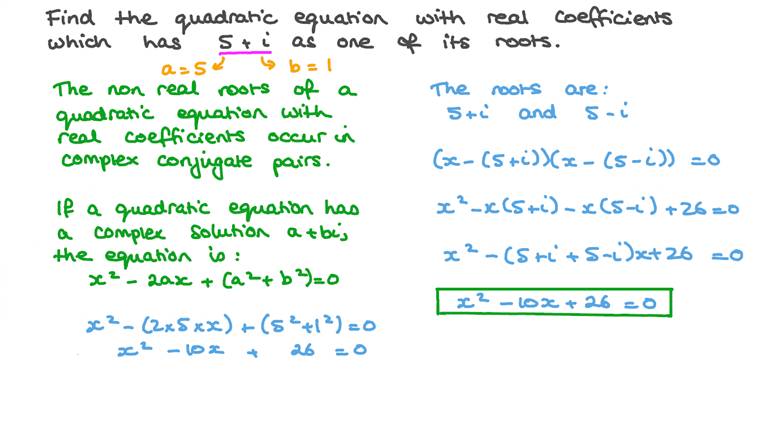 Find the quadratic equation with real coefficients
which has 5 + i as one of its roots.
a = 5 b = 1
The non real roots of a
quadratic equation with
real coefficients occur in
complex conjugate pairs.
If a quadratic equation has
a complex solution a+bi,
the equation is:
x² - 2ax + (a² + b²) = 0
x² - (2×5×x) + (5² + 1²) = 0
x² - 10x + 26 = 0
The roots are:
5+i and 5-i
(x - (5+i))(x - (5-i)) = 0
x² - x(5+i) - x(5-i) + 26 = 0
x² - (5+i + 5-i)x + 26 = 0
x² - 10x + 26 = 0